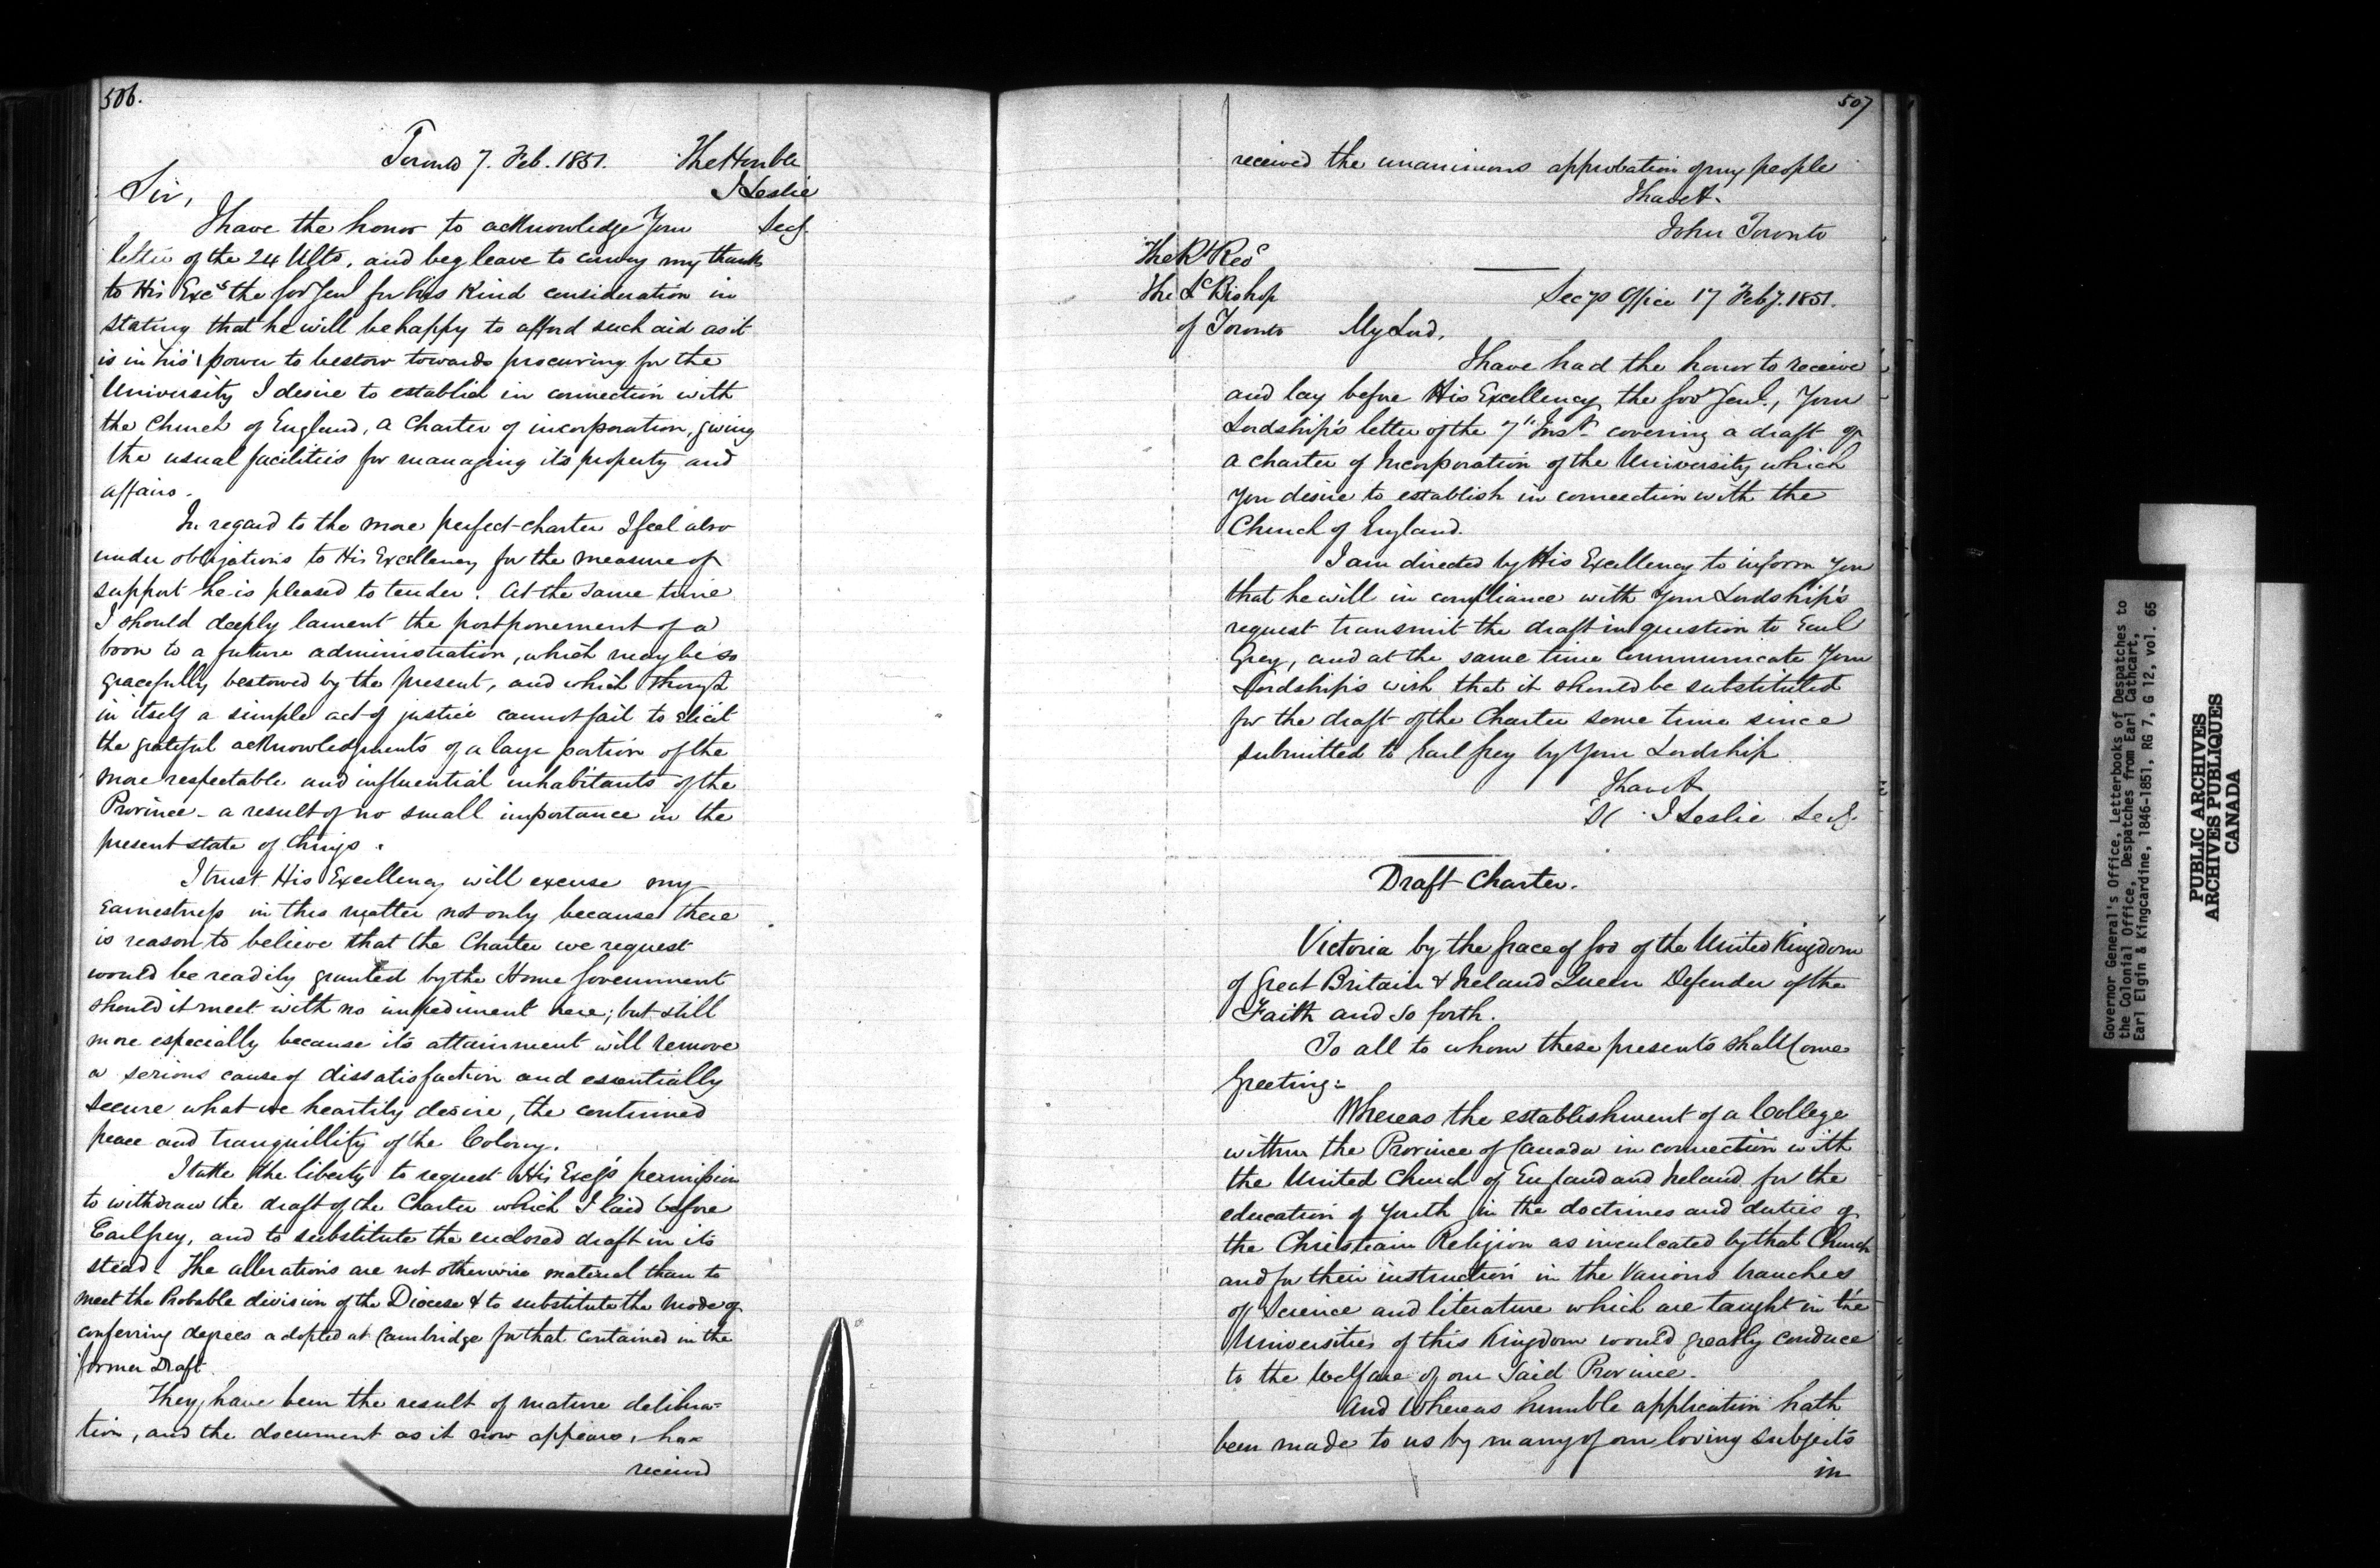 506.
Toronto 7. Feb. 1851.
The Honble
J Leslie
Secy.
Sir,
I have the honor to acknowledge Your
letter of the 24 Ulto, and beg leave to convey my thanks
to His Excy the Gov Genl for his Kind consideration in
stating that he will be happy to afford such aid as it
is in his power to bestow towards procuring for the
University I desire to establish in connection with
the Church of England, a Charter of incorporation, giving
the usual facilities for managing its property and
affairs.
In regard to the more perfect charter I feel also
under obligations to His Excellency for the measure of
support he is pleased to tender. At the same time
I should deeply lament the postponement of a
boon to a future administration, which may be so
gracefully bestowed by the present, and which though
in itself a simple act of justice cannot fail to elicit
the grateful acknowledgments of a large portion of the
more respectable and influential inhabitants of the
Province - a result of no small importance in the
present state of things.
I trust His Excellency will excuse my
earnestness in this matter not only because there
is reason to believe that the Charter we request
would be readily granted by the Home Government
should it meet with no impediment here; but still
more especially because its attainment will remove
a serious cause of dissatisfaction and essentially
secure what we heartily desire, the continued
peace and tranquillity of the Colony.
I take the liberty to request His Excy's permission
to withdraw the draft of the Charter which I laid before
Earl Grey, and to substitute the enclosed draft in its
stead. The alterations are not otherwise material than to
meet the Probable division of the Diocese & to substitute the mode of
conferring degrees adopted at Cambridge for that contained in the
former Draft.
They have been the result of mature delibera=
tion, and the document as it now appears, has
received
507
received the unanimous approbation of my people
I have &c.
John Toronto
The Rt Revd
The Ld Bishop
of Toronto
Secys Office 17 Feby. 1851.
My Lord,
I have had the honor to receive
and lay before His Excellency the Gov Genl., Your
Lordship's letter of the 7" Inst. covering a draft of
a charter of Incorporation of the University which
you desire to establish in connection with the
Church of England.
I am directed by His Excellency to inform You
that he will in compliance with Your Lordship's
request transmit the draft in question to Earl
Grey, and at the same time communicate Your
Lordship's wish that it should be substituted
for the draft of the Charter some time since
submitted to Earl Grey by Your Lordship
I have &c
J Leslie Secy.
Draft Charter.
Victoria by the Grace of God of the United Kingdom
of Great Britain & Ireland Queen Defender of the
Faith and so forth.
To all to whom these presents shall Come
Greeting:
Whereas the establishment of a College
within the Province of Canada in connection with
the United Church of England and Ireland for the
education of Youth in the doctrines and duties of
the Christian Religion as inculcated by that Church
and for their instruction in the Various branches
of Science and literature which are taught in the
Universities of this Kingdom would greatly conduce
to the Welfare of our Said Province.
And Whereas humble application hath
been made to us by many of our loving subjects
in
Governor General's Office, Letterbooks of Despatches to
the Colonial Office, Despatches from Earl Cathcart,
Earl Elgin & Kingcardine, 1846-1851, RG 7, G 12, vol. 65
PUBLIC ARCHIVES
ARCHIVES PUBLIQUES
CANADA